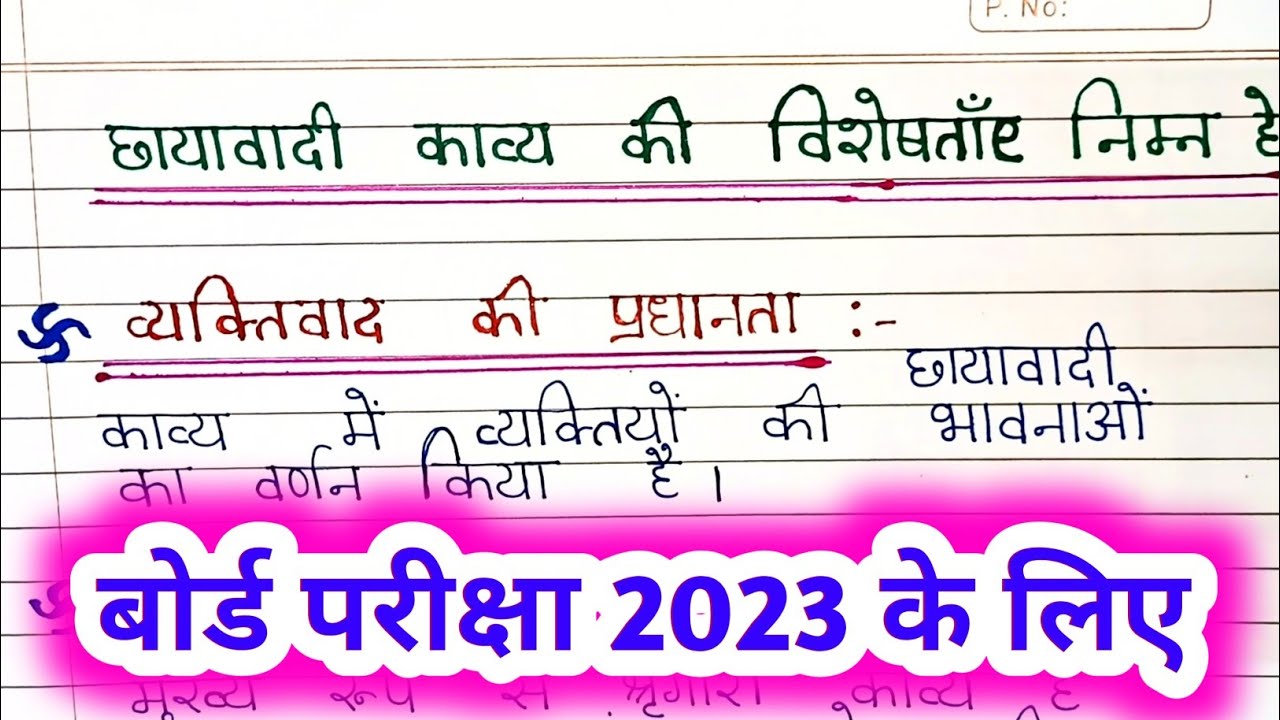 P. No:
छायावादी काव्य की विशेषताँए निम्न है
व्यक्तिवाद की प्रधानता :-
छायावादी
काव्य में व्यक्तियों की भावनाओं
का वर्णन किया है।
बोर्ड परीक्षा 2023 के लिए
मुख्य रूप से श्रृंगारी काव्य है